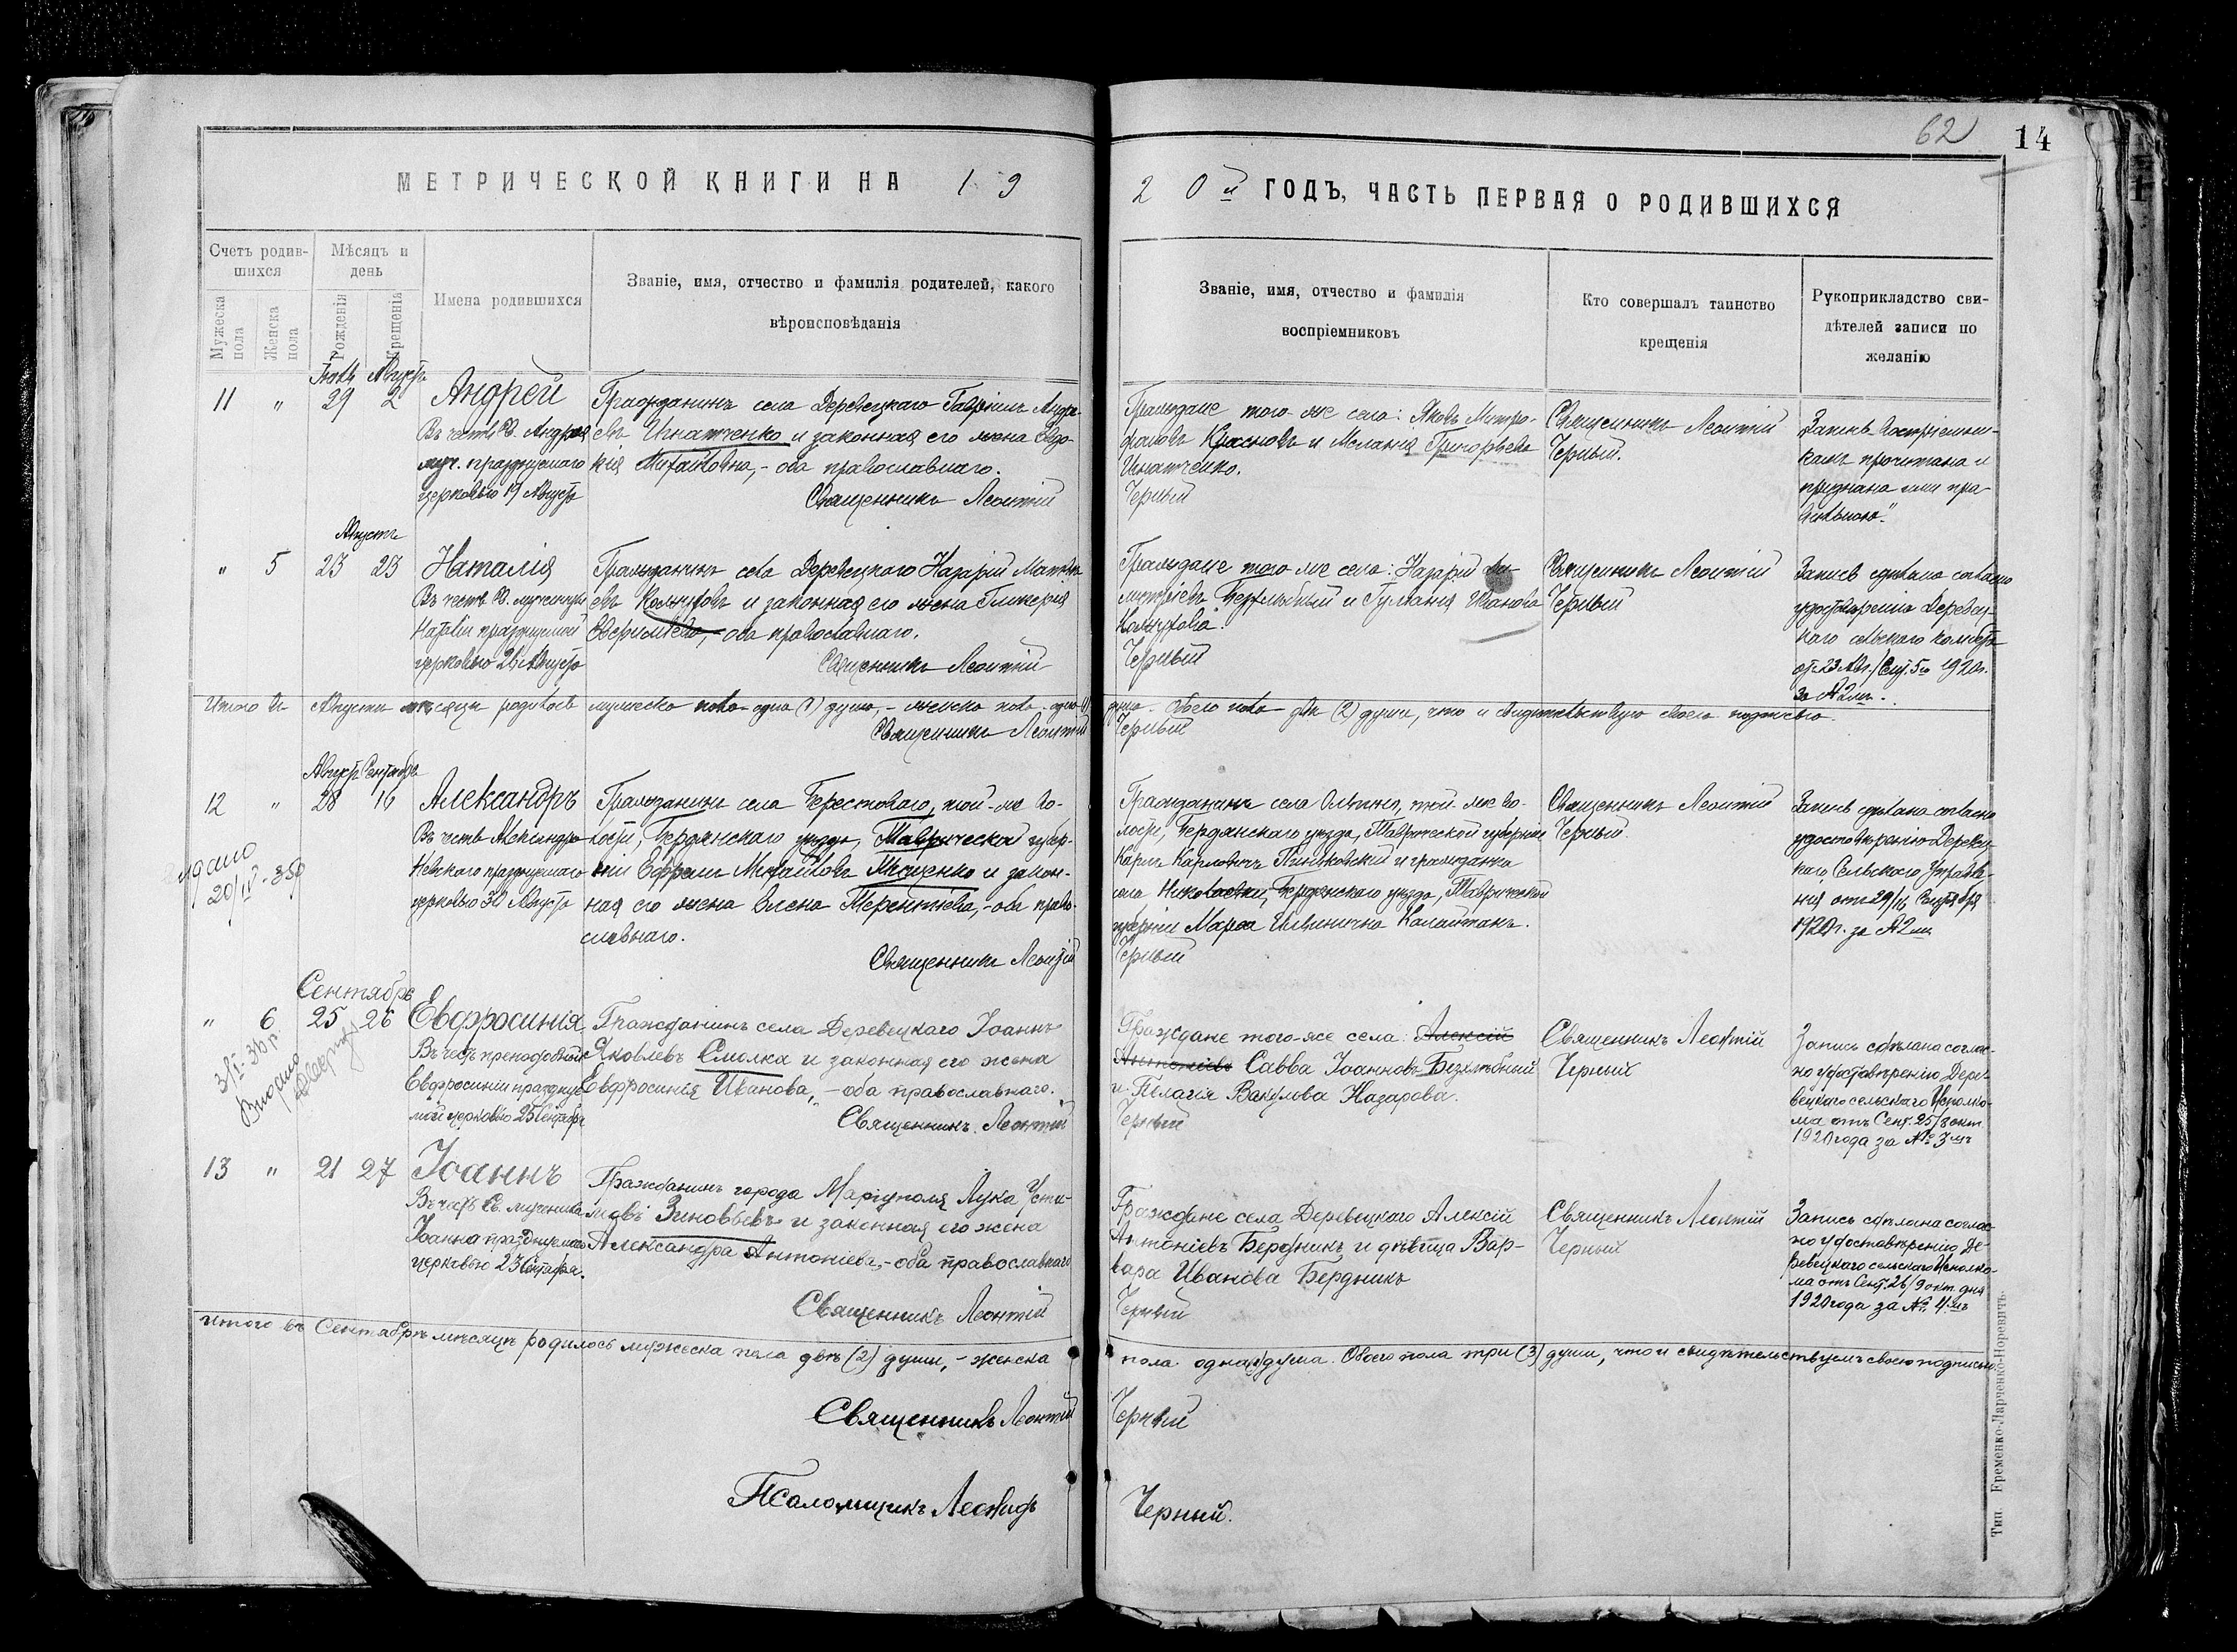 62
14
МЕТРИЧЕСКОЙ КНИГИ НА 19
20й ГОДЪ, ЧАСТЬ ПЕРВАЯ О РОДИВШИХСЯ
Счетъ родив-
шихся
Мужеска пола
Женска пола
Мѣсяцъ и
день
Рожденія
Крещенія
Имена родившихся
Званіе, имя, отчество и фамилія родителей, какого
вѣроисповѣданія
Званіе, имя, отчество и фамилія
воспріемниковъ
Кто совершалъ таинство
крещенія
Рукоприкладство сви-
дѣтелей записи по
желанію
11 " 29 2
Андрей
Въ честь Св. Андрея
муч. празднуемаго
церковью 19 Августа
Гражданинъ села Деревецкаго Гавріилъ Андре-
евъ Игнатченко и законная его жена Евдо-
кія Михайловна, - оба православнаго.
Священникъ Леонтій
Граждане того-же села: Яковъ Митро-
фановъ Красновъ и Меланія Григорьева
Игнатченко.
Черный
Священникъ Леонтій
Черный.
Запись воспріемни-
камъ прочитана и
признана ими пра-
вильною.
Августъ
" 5 23 23
Наталія
Въ честь Св. мученицы
Наталіи празднуемой
церковью 26 Августа
Гражданинъ села Деревецкаго Назарій Матѳ
евъ и законная его жена Гликерія
- оба православнаго.
Священникъ Леонтій
Граждане того-же села: Назарій Ди-
митріевъ Безхлѣбный и Иванова
Черный
Священникъ Леонтій
Черный
Запись сдѣлана согласно
удостовѣренія Деревец-
каго сельскаго
1920г.
за №2мъ.
Итого въ Августѣ мѣсяцѣ родилось мужеска пола одна (1) душа, - женска пола одна (1)
душа. Обоего пола двѣ (2) души, что и свидѣтельствую своею подписью.
Священникъ Леонтій
Черный
Августъ Сентябрь
12 " 28 16
Александръ
Въ честь Александра
Невскаго празднуемаго
церковью 30 Августа
Гражданинъ села Берестоваго, той-же во-
лости, Бердянскаго уѣзда, Таврической губер-
ніи Ефремъ Михайловъ Ищенко и закон-
ная его жена Елена Терентіева, - оба право-
славнаго.
Священникъ Леонтій
Гражданинъ села той-же во-
лости, Бердянскаго уѣзда, Таврической губерніи
Карлъ Карловичъ и гражданка
села Николаевки, Бердянскаго уѣзда, Таврической
губерніи Марѳа Ильинична
Черный
Священникъ Леонтій
Черный.
Запись сдѣлана согласно
удостовѣренію Деревец-
каго Сельскаго Управле-
нія отъ 29/16 Сентября
1920г. за №2мъ
Сентябрь
" 6 25 26
Евфросинія
Въ честь преподобной
Евфросиніи праздну-
мой церковью 25 Сентября
Гражданинъ села Деревецкаго Іоаннъ
Яковлевъ Смолка и законная его жена
Евфросинія Иванова, - оба православнаго.
Священникъ Леонтій
Граждане того-же села: Алексій
Антоніевъ Савва Іоанновъ Безхлѣбный
и Пелагія Вакулова Назарова.
Черный
Священникъ Леонтій
Черный
Запись сдѣлана соглас-
но удостовѣренію Дере-
вецкаго сельскаго Исполко-
ма отъ Сент. 25/8 окт.
1920 года за № 3мъ
13 " 21 27
Іоаннъ
Въ честь Св. мученика
Іоанна празднуемаго
церковью 23 Сентября.
Гражданинъ города Маріуполя Лука Усти-
мовъ Зиновьевъ и законная его жена
Александра Антоніева, - оба православнаго
Священникъ Леонтій
Граждане села Деревецкаго Алексій
Антоніевъ Бердникъ и дѣвица Вар-
вара Иванова Бердникъ
Черный
Священникъ Леонтій
Черный
Запись сдѣлана соглас-
но удостовѣренію Де-
ревецкаго сельскаго Исполко-
ма отъ Сент. 26/9 окт. дня
1920 года за № 4мъ
Итого въ Сентябрѣ мѣсяцѣ родилось мужеска пола двѣ (2) души, - женска
пола одна (1) душа. Обоего пола три (3) души, что и свидѣтельствуемъ своею подписью
Священникъ Леонтій
Черный
Псаломщикъ Леонидъ
Черный.
Тип. Еременко-Ларченко-Норевичъ.